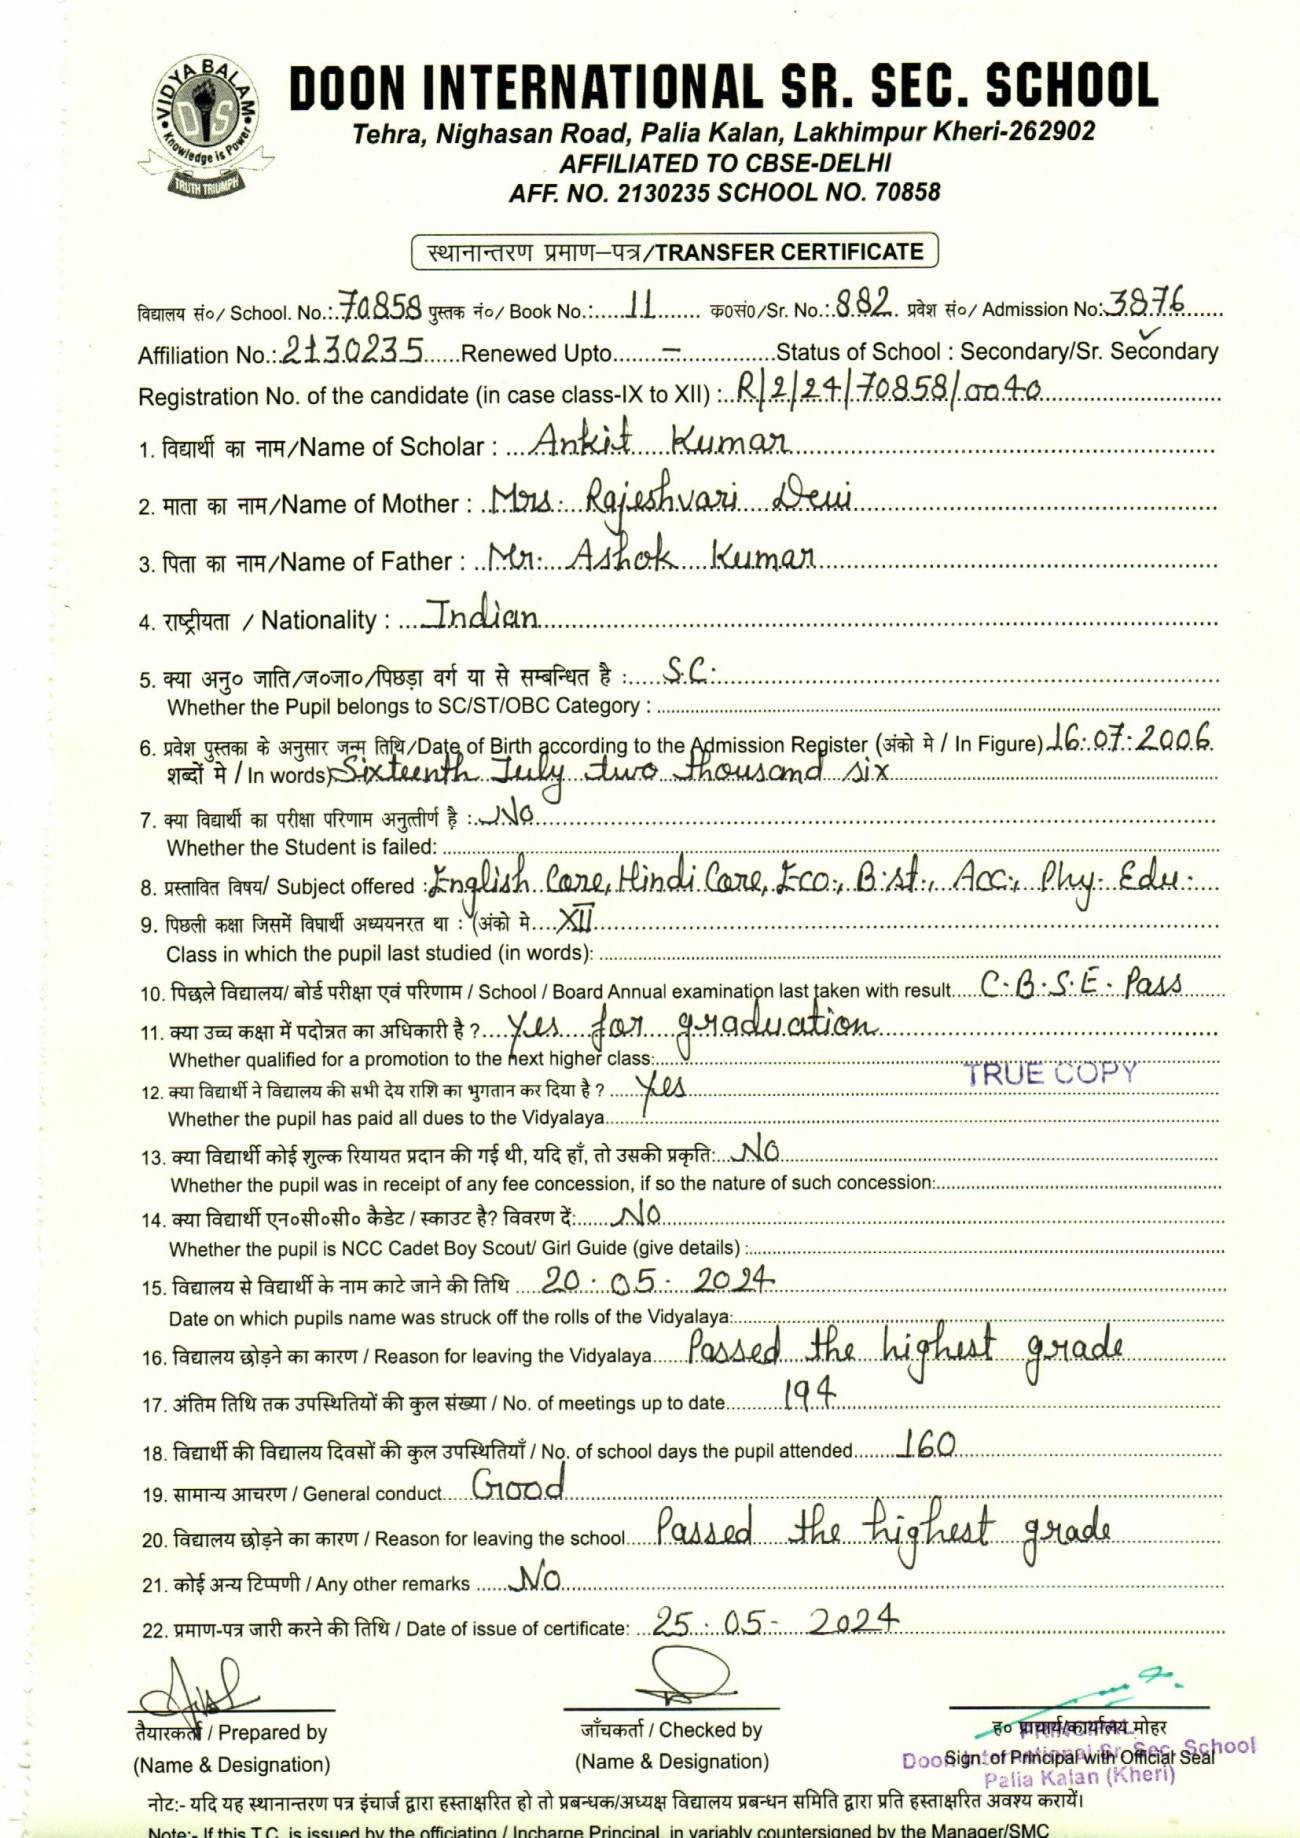 VIDYA BALAM
DIS
Knowledge is Power
TRUTH TRIUMPH
DOON INTERNATIONAL SR. SEC. SCHOOL
Tehra, Nighasan Road, Palia Kalan, Lakhimpur Kheri-262902
AFFILIATED TO CBSE-DELHI
AFF. NO. 2130235 SCHOOL NO. 70858
स्थानान्तरण प्रमाण–पत्र/TRANSFER CERTIFICATE
विद्यालय सं०/ School. No.:.70858 पुस्तक नं०/ Book No.:.....11....... क०सं०/Sr. No.:882. प्रवेश सं०/ Admission No:.3876......
Affiliation No.:.2130235.....Renewed Upto.......–..............Status of School : Secondary/Sr. Secondary ✓
Registration No. of the candidate (in case class-IX to XII) :..R/2/24/70858/0040
1. विद्यार्थी का नाम/Name of Scholar : ...Ankit Kumar
2. माता का नाम/Name of Mother : ..Mrs. Rajeshvari Devi
3. पिता का नाम/Name of Father : ..Mr. Ashok Kumar
4. राष्ट्रीयता / Nationality : ...Indian
5. क्या अनु० जाति/ज०जा०/पिछड़ा वर्ग या से सम्बन्धित है :.....S.C.
Whether the Pupil belongs to SC/ST/OBC Category :
6. प्रवेश पुस्तका के अनुसार जन्म तिथि/Date of Birth according to the Admission Register (अंको मे / In Figure) 16.07.2006.
शब्दों मे / In words) Sixteenth July two thousand six
7. क्या विद्यार्थी का परीक्षा परिणाम अनुत्तीर्ण है :..No
Whether the Student is failed:
8. प्रस्तावित विषय/ Subject offered :English Core, Hindi Core, Eco., B.st., Acc., Phy. Edu.
9. पिछली कक्षा जिसमें विघार्थी अध्ययनरत था : (अंको मे....XII
Class in which the pupil last studied (in words):
10. पिछले विद्यालय/ बोर्ड परीक्षा एवं परिणाम / School / Board Annual examination last taken with result.....C.B.S.E. Pass
11. क्या उच्च कक्षा में पदोन्नत का अधिकारी है ?....Yes for graduation
Whether qualified for a promotion to the next higher class:
TRUE COPY
12. क्या विद्यार्थी ने विद्यालय की सभी देय राशि का भुगतान कर दिया है ? .....Yes
Whether the pupil has paid all dues to the Vidyalaya
13. क्या विद्यार्थी कोई शुल्क रियायत प्रदान की गई थी, यदि हाँ, तो उसकी प्रकृति:...No
Whether the pupil was in receipt of any fee concession, if so the nature of such concession:
14. क्या विद्यार्थी एन०सी०सी० कैडेट / स्काउट है? विवरण दें:......No
Whether the pupil is NCC Cadet Boy Scout/ Girl Guide (give details) :
15. विद्यालय से विद्यार्थी के नाम काटे जाने की तिथि ....20.05.2024
Date on which pupils name was struck off the rolls of the Vidyalaya:
16. विद्यालय छोड़ने का कारण / Reason for leaving the Vidyalaya.....Passed the highest grade
17. अंतिम तिथि तक उपस्थितियों की कुल संख्या / No. of meetings up to date..........194
18. विद्यार्थी की विद्यालय दिवसों की कुल उपस्थितियाँ / No. of school days the pupil attended.......160
19. सामान्य आचरण / General conduct.....Good
20. विद्यालय छोड़ने का कारण / Reason for leaving the school.....Passed the highest grade
21. कोई अन्य टिप्पणी / Any other remarks ......No
22. प्रमाण-पत्र जारी करने की तिथि / Date of issue of certificate: ...25.05.2024
तैयारकर्ता / Prepared by
(Name & Designation)
जाँचकर्ता / Checked by
(Name & Designation)
ह० प्राचार्य/कार्यालय मोहर
Sign. of Principal with Official Seal
PRINCIPAL
Doon International Sr. Sec. School
Palia Kalan (Kheri)
नोट:- यदि यह स्थानान्तरण पत्र इंचार्ज द्वारा हस्ताक्षरित हो तो प्रबन्धक/अध्यक्ष विद्यालय प्रबन्धन समिति द्वारा प्रति हस्ताक्षरित अवश्य करायें।
Note:- If this T.C. is issued by the officiating / Incharge Principal, in variably countersigned by the Manager/SMC